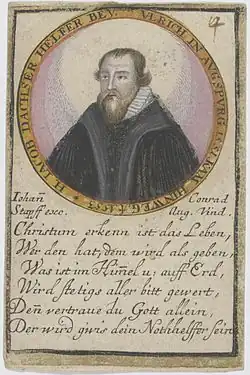 H. IACOB DACHSER HELFER BEY S. VLRICH IN AVGSPVRG
4
Iohañ Conrad
Stapff exc. Aug. Vind.
Christum erkenn ist das Leben,
Wer den hat, dem wird als geben,
Was ist im Him̃el u. auff Erd,
Wird stetigs aller bitt gewert,
Deñ vertraue du Gott allein,
Der wird gwis dein Nothhelffer sein